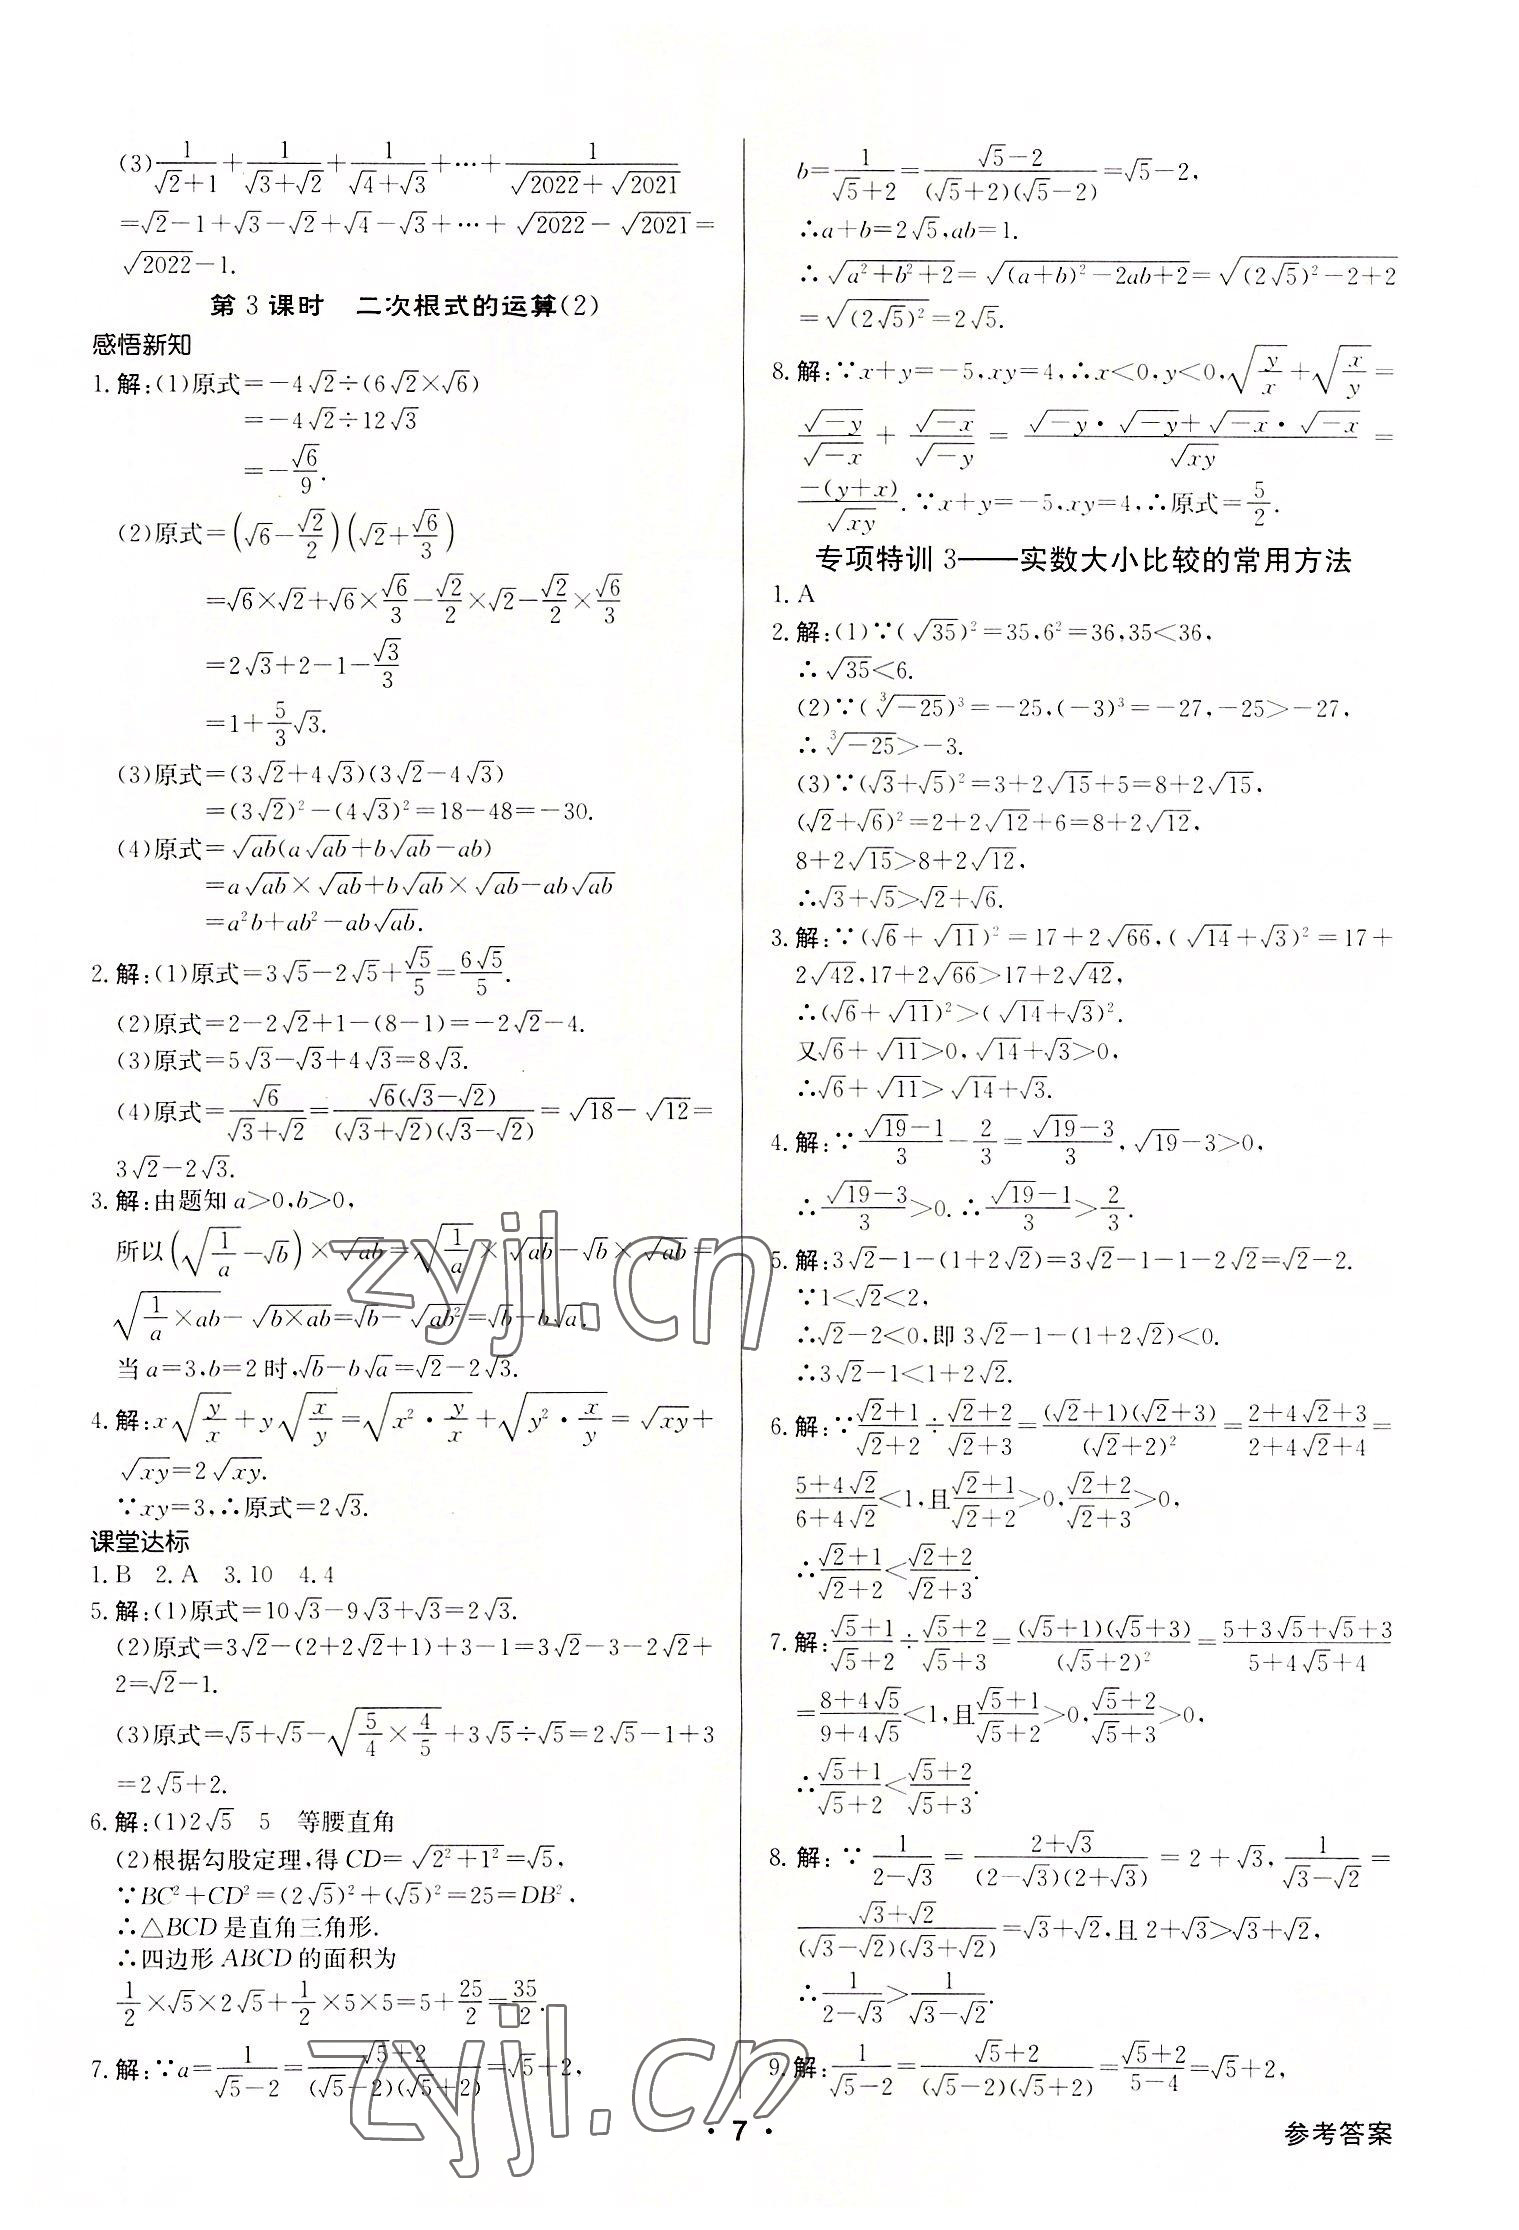 (3)1/(√2+1)+1/(√3+√2)+1/(√4+√3)+···+1/(√2022+√2021)
=√2-1+√3-√2+√4-√3+···+√2022-√2021=
√2022-1.
第 3 课时 二次根式的运算(2)
感悟新知
1.解:(1)原式=-4√2÷(6√2×√6)
=-4√2÷12√3
=-√6/9.
(2)原式=(√6-√2/2)(√2+√6/3)
=√6×√2+√6×√6/3-√2/2×√2-√2/2×√6/3
=2√3+2-1-√3/3
=1+5/3√3.
(3)原式=(3√2+4√3)(3√2-4√3)
=(3√2)²-(4√3)²=18-48=-30.
(4)原式=√ab(a√ab+b√ab-ab)
=a√ab×√ab+b√ab×√ab-ab√ab
=a²b+ab²-ab√ab.
2.解:(1)原式=3√5-2√5+√5/5=6√5/5.
(2)原式=2-2√2+1-(8-1)=-2√2-4.
(3)原式=5√3-√3+4√3=8√3.
(4)原式=√6/(√3+√2)=√6(√3-√2)/((√3+√2)(√3-√2))=√18-√12=
3√2-2√3.
3.解:由题知 a>0,b>0,
所以(√(1/a)-√b)×√ab=√(1/a)×√ab-√b×√ab=
√(1/a×ab)-√(b×ab)=√b-√(ab²)=√b-b√a.
当 a=3,b=2 时,√b-b√a=√2-2√3.
4.解:x√(y/x)+y√(x/y)=√(x²·y/x)+√(y²·x/y)=√xy+
√xy=2√xy.
∵xy=3,∴原式=2√3.
课堂达标
1.B 2.A 3.10 4.4
5.解:(1)原式=10√3-9√3+√3=2√3.
(2)原式=3√2-(2+2√2+1)+3-1=3√2-3-2√2+
2=√2-1.
(3)原式=√5+√5-√(5/4×4/5)+3√5÷√5=2√5-1+3
=2√5+2.
6.解:(1)2√5 5 等腰直角
(2)根据勾股定理,得 CD=√(2²+1²)=√5,
∵BC²+CD²=(2√5)²+(√5)²=25=DB²,
∴△BCD 是直角三角形.
∴四边形 ABCD 的面积为
1/2×√5×2√5+1/2×5×5=5+25/2=35/2.
7.解:∵a=1/(√5-2)=(√5+2)/((√5-2)(√5+2))=√5+2,
b=1/(√5+2)=(√5-2)/((√5+2)(√5-2))=√5-2,
∴a+b=2√5,ab=1.
∴√(a²+b²+2)=√((a+b)²-2ab+2)=√((2√5)²-2+2)
=√((2√5)²)=2√5.
8.解:∵x+y=-5,xy=4,∴x<0,y<0,√(y/x)+√(x/y)=
√-y/√-x+√-x/√-y=(√-y·√-y+√-x·√-x)/√xy=
-(y+x)/√xy.∵x+y=-5,xy=4,∴原式=5/2.
专项特训 3——实数大小比较的常用方法
1.A
2.解:(1)∵(√35)²=35,6²=36,35<36,
∴√35<6.
(2)∵(³√-25)³=-25,(-3)³=-27,-25>-27,
∴³√-25>-3.
(3)∵(√3+√5)²=3+2√15+5=8+2√15,
(√2+√6)²=2+2√12+6=8+2√12,
8+2√15>8+2√12,
∴√3+√5>√2+√6.
3.解:∵(√6+√11)²=17+2√66,(√14+√3)²=17+
2√42,17+2√66>17+2√42,
∴(√6+√11)²>(√14+√3)².
又√6+√11>0,√14+√3>0,
∴√6+√11>√14+√3.
4.解:∵(√19-1)/3-2/3=(√19-3)/3,√19-3>0,
∴(√19-3)/3>0.∴(√19-1)/3>2/3.
5.解:3√2-1-(1+2√2)=3√2-1-1-2√2=√2-2.
∵1<√2<2,
∴√2-2<0,即 3√2-1-(1+2√2)<0.
∴3√2-1<1+2√2.
6.解:∵(√2+1)/(√2+2)÷(√2+2)/(√2+3)=(√2+1)(√2+3)/(√2+2)²=(2+4√2+3)/(2+4√2+4)=
(5+4√2)/(6+4√2)<1,且(√2+1)/(√2+2)>0,(√2+2)/(√2+3)>0,
∴(√2+1)/(√2+2)<(√2+2)/(√2+3).
7.解:(√5+1)/(√5+2)÷(√5+2)/(√5+3)=(√5+1)(√5+3)/(√5+2)²=(5+3√5+√5+3)/(5+4√5+4)
=(8+4√5)/(9+4√5)<1,且(√5+1)/(√5+2)>0,(√5+2)/(√5+3)>0,
∴(√5+1)/(√5+2)<(√5+2)/(√5+3).
8.解:∵1/(2-√3)=(2+√3)/((2-√3)(2+√3))=2+√3,1/(√3-√2)=
(√3+√2)/((√3-√2)(√3+√2))=√3+√2,且 2+√3>√3+√2,
∴1/(2-√3)>1/(√3-√2).
9.解:1/(√5-2)=(√5+2)/((√5-2)(√5+2))=(√5+2)/(5-4)=√5+2,
zyjl.cn
zyjl.cn
·7·
参考答案